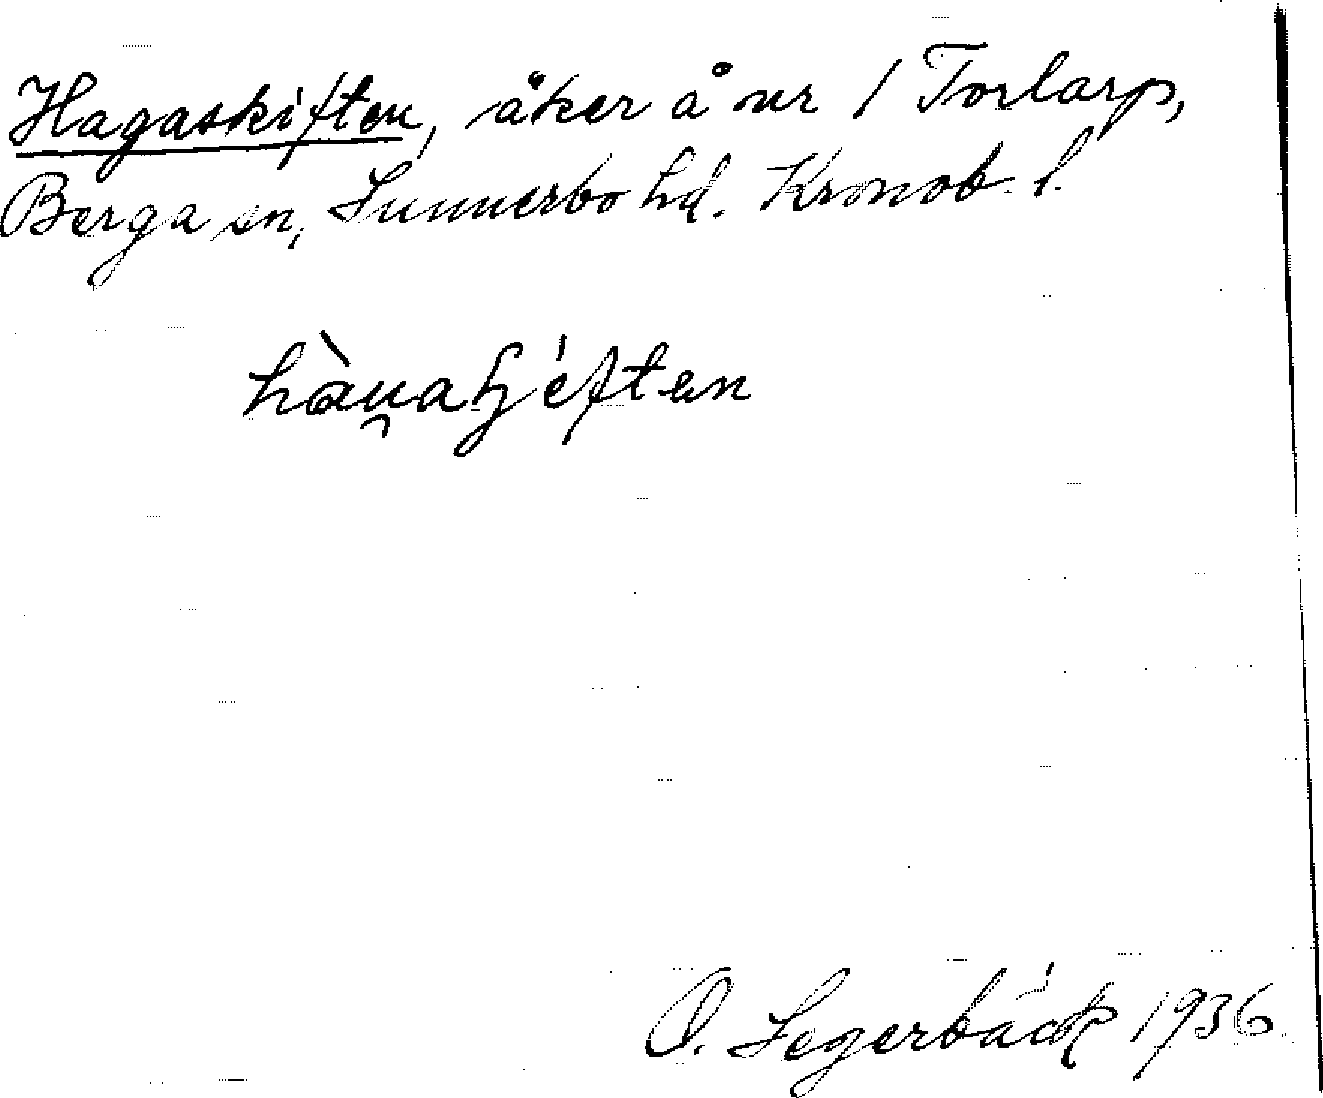 Hagaskiften, åker å nr 1 Torlarp,
Berga sn, Sunnerbo hd. Kronob. l.
O. Segerbäck 1936